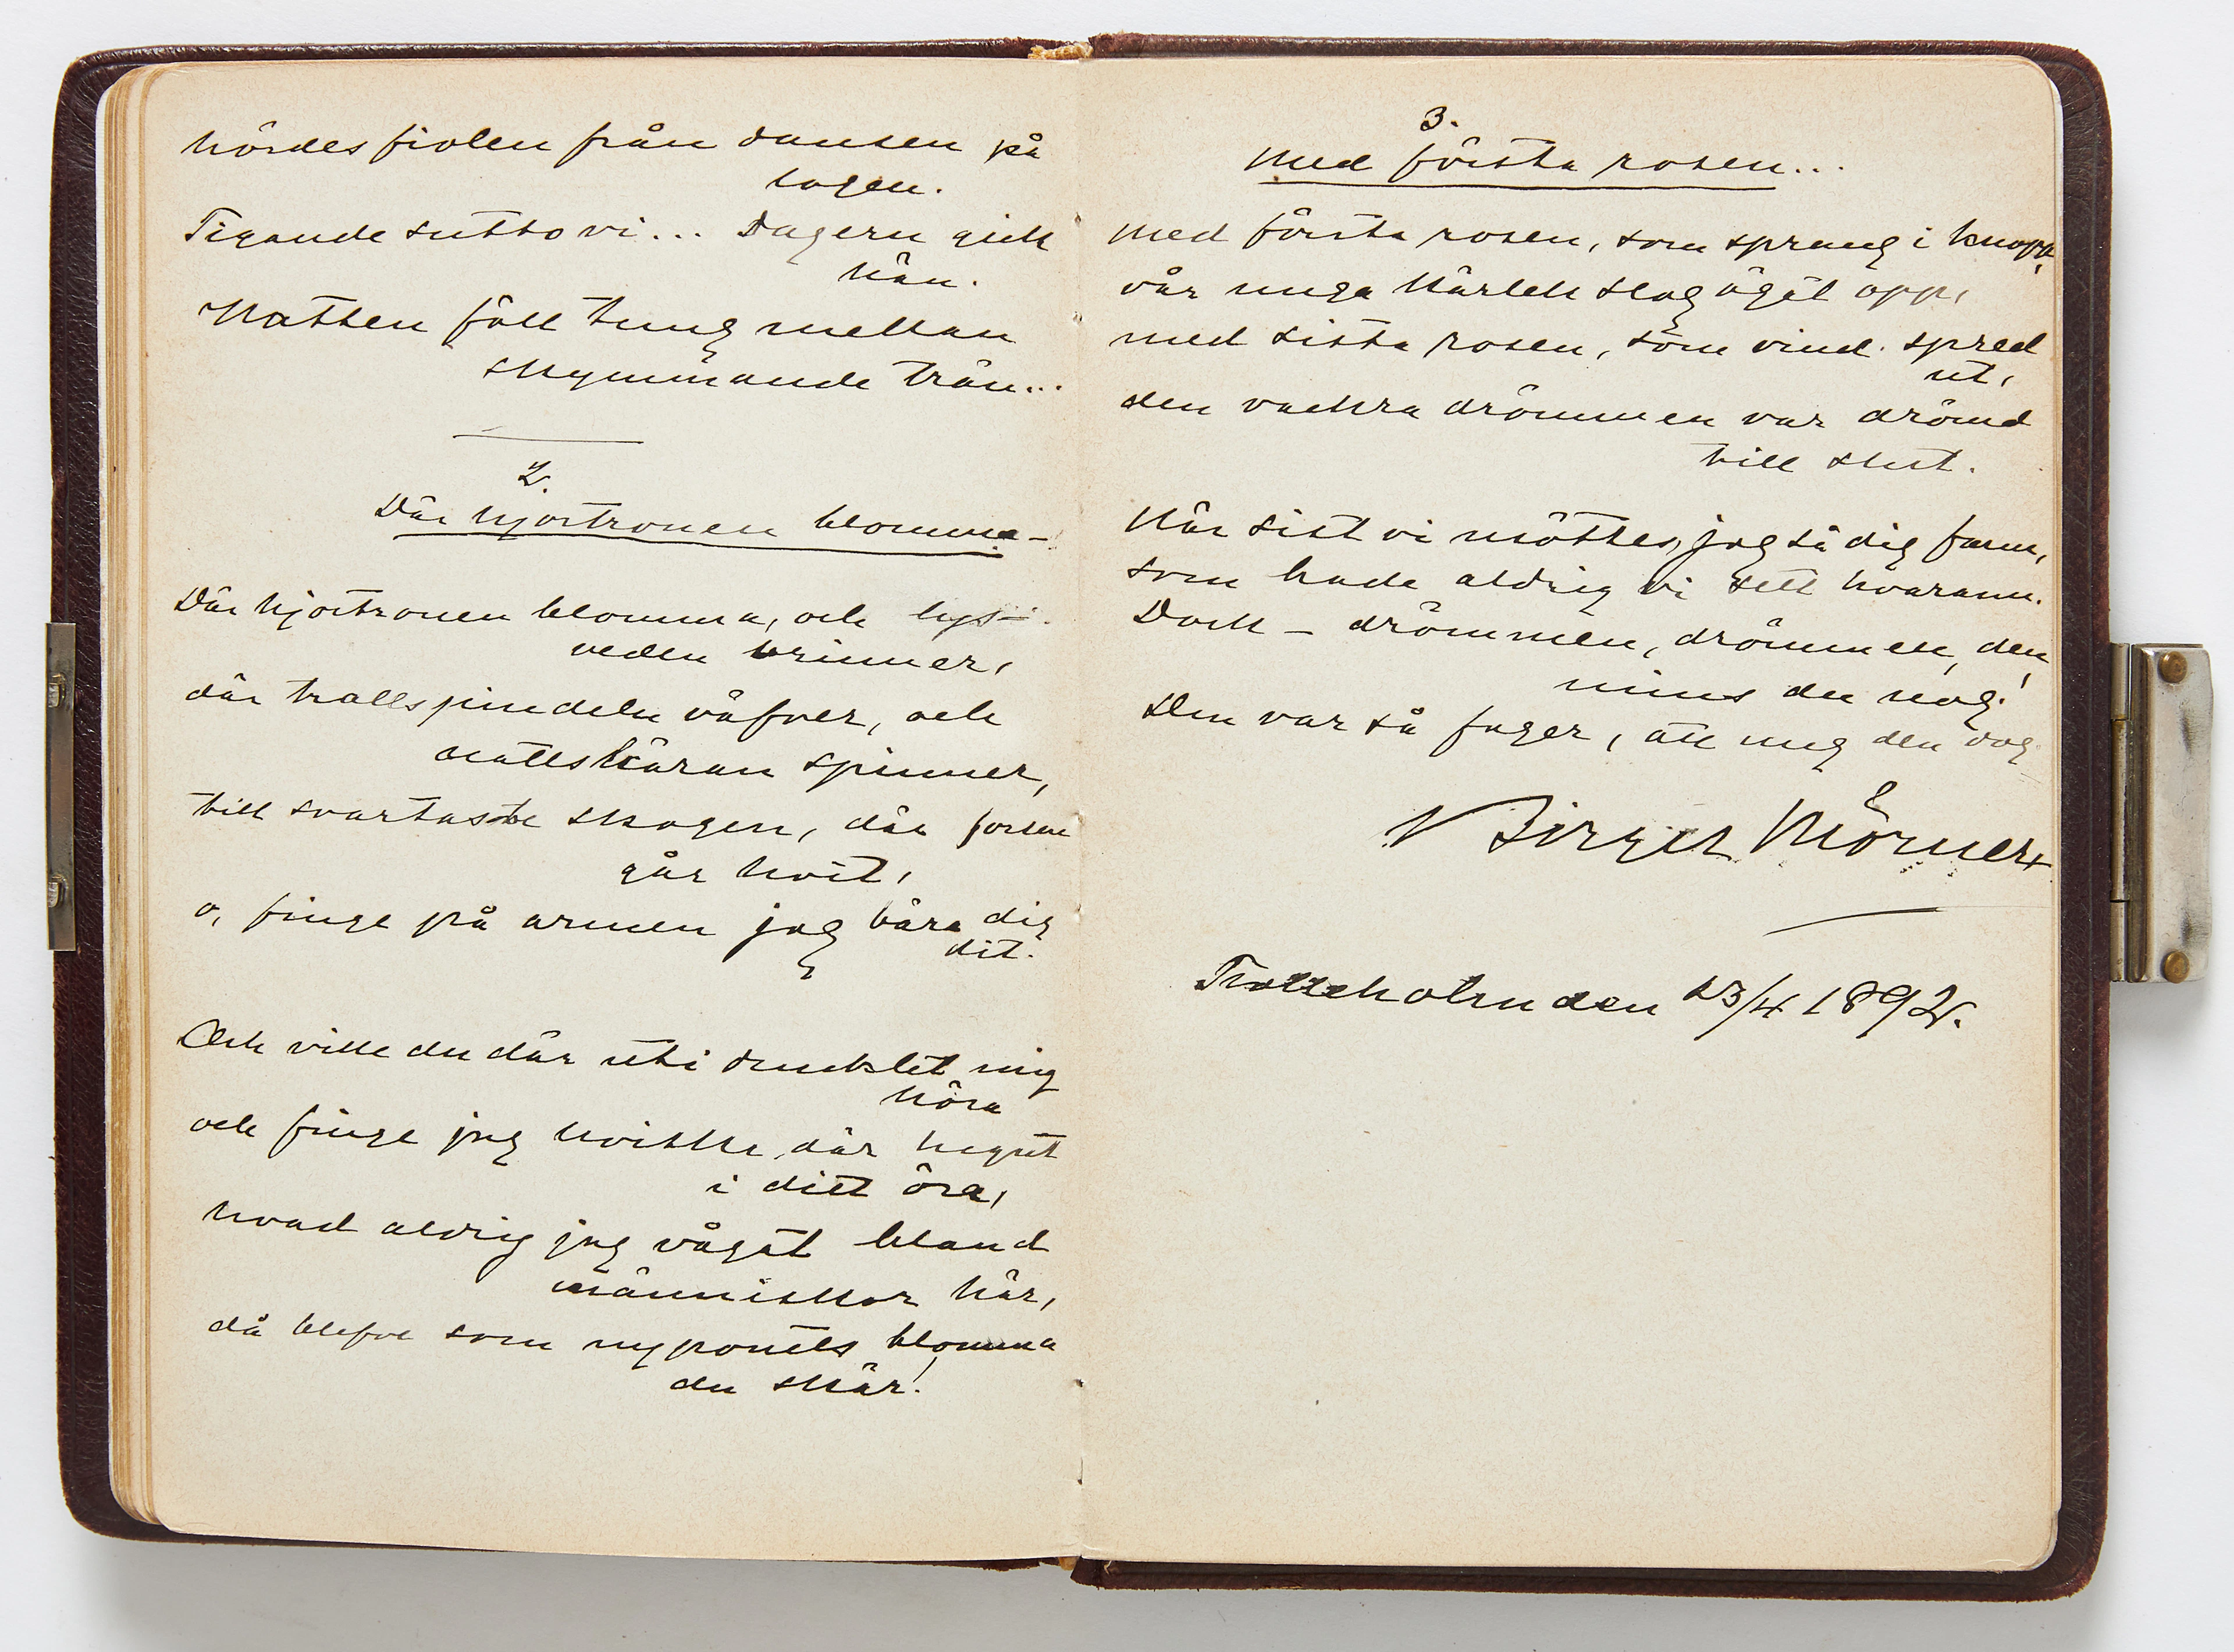 hördes fiolen från dansen på
logen.
Tigande sutto vi... Dagern gick
hän.
Natten föll tung mellan
skymmande trän...
2.
Där hjortronen blomma –
Där hjortronen blomma, och lys-
veden brinner,
där trollspindeln väfver, och
nattskäran spinner,
till svartaste skogen, där forsen
går hvit,
o, finge på armen jag bära dig
dit.
Och ville du där uti dunklet mig
höra
och finge jag hviska där något
i ditt öra,
hvad aldrig jag vågat bland
människor här,
då blefve som nyponets blomma
du skär!
3.
Med första rosen...
Med första rosen, som sprang i knopp,
vår unga kärlek slog ögat opp,
med sista rosen, som vind spred
ut,
den vackra drömmen var drömd
till slut.
När sist vi möttes, jag så dig fann,
som hade aldrig vi sett hvarann.
Dock – drömmen, drömmen, den
mins du nog!
Den var så fager, att ung den dog.
Birger Mörner
Trolleholm den 23/4 1892.